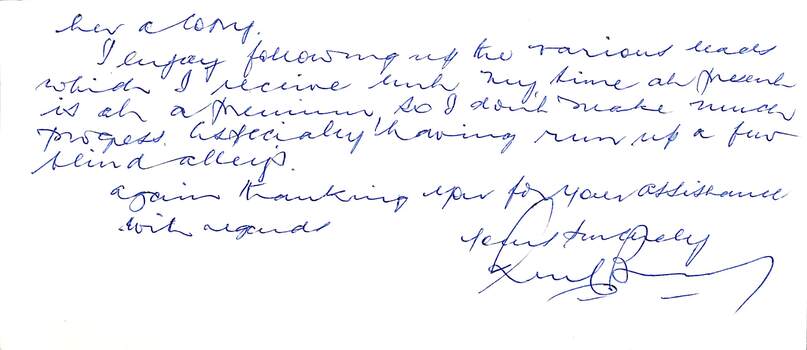 her a copy.
I enjoy following up the various leads
which I receive but my time at present
is at a premium, so I don't make much
progress. Especially having run up a few
blind alleys.
Again thanking you for your assistance
with regards
Yours sincerely